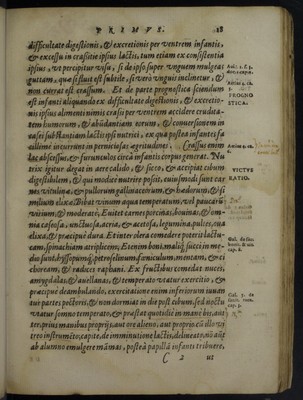 PRIMVS. 18
difficultate digestionis, & excretionis per ventrem infantis,
& excessu in crassitie ipsius lactis, tum etiam ex consistentia
ipsius, vt percipitur visu, si de ipso super vnguem mulgeat
guttam, quæ si fluit est subtile, si verò vnguis inclinetur, &
non currat est crassum. Et de parte prognostica sciendum
est infanti aliquando ex difficultate digestionis, & excretio-
nis ipsius alimenti nimis crassi per ventrem accidere crudita-
tem humorum, & abundantiam eorum, & conuersionem in
vasis substantiam lactis ipsi nutrici, ex qua postea infantes fa
cillimè incurrunt in perniciosas ægritudines. Crassus enim
lac abscessus, & furunculos circà infantis corpus generat. Nu
trix igitur degat in aere calido, & sicco, & accipiat cibum
digestibilem, & qui modicè nutrire possit, cuiusmodi sunt car
nes vitulinæ, & pullorum gallinaceorum, & hædorum, & si
milium elixæ. Bibat vinum aqua temperatum, vel paucum
vinum, & moderatè, Euitet carnes porcinas, bouinas, & om-
nia caseosa, vnctuosa, acria, & acetosa, legumina, pultes, oua
elixa, & præcipuè dura. Et inter olera comedere poterit lactu-
cam, spinachiam atriplicem, Etenim boni, maliq́; succi in me-
dio sunt, hyssopumq́; petroselinum, fæniculum, mentam, & ci
choream, & radices raphani. Ex fructibus comedat nuces,
amygdalas, & auellanas, & temperato vtatur exercitio, &
præcipuè deambulando, exercitatione enim inferiorum iuuan
tur partes pectoris, & non dormiat in die post cibum, sed noctu
vtatur somno temperato, & præstat quotidie in mane bis, aut
ter, prius manibus proprijs, aut ore alieno, aut proprio cū illo vi
treo instrumēto, capite, de imminutione lactis, delineato, nō autē
ab alumno emulgere mamas, posteà papillā infanti tribuere,
C 2 vt
PROGNO
STICA.
VICTVS
RATIO.